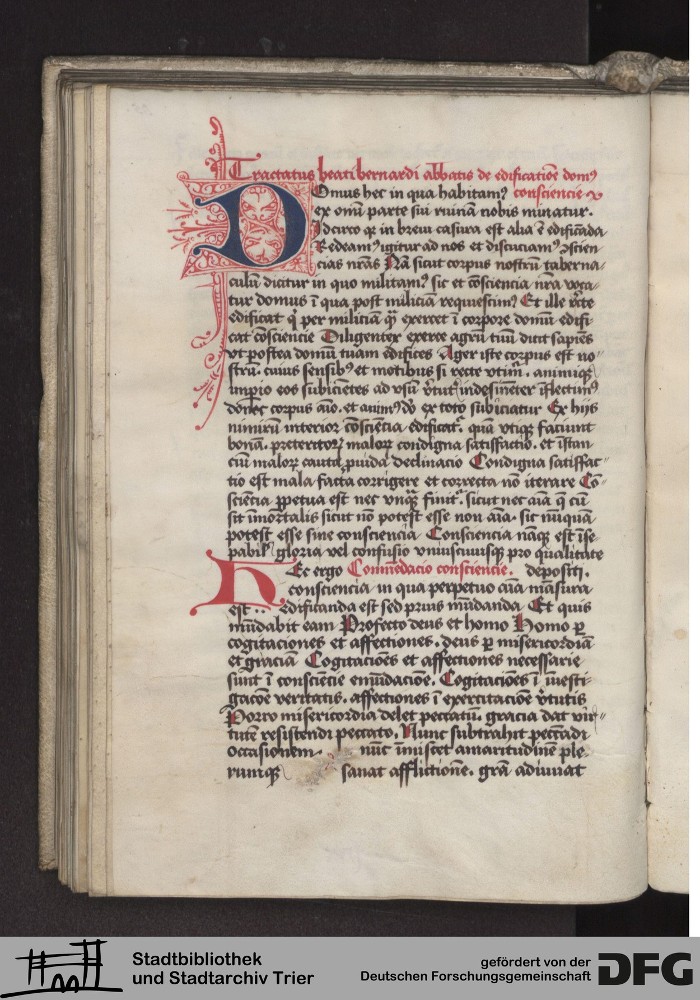 Tractatus beati bernardi abbatis de edificatiōe domꝰ
Domus hec in qua habitamꝰ consciencie
ex omī parte sui ruinam nobis minatur.
Idcirco qꝛ in breui casura est alia ē edificāda
Redeamꝰ igitur ad nos et discuciamꝰ ꝯscien
cias nr̄as Nā sicut corpus nostrū taberna-
culū dicitur in quo militamꝰ sic et cōsciencia nr̄a voca
tur domus ī qua post miliciam requiescimꝰ Et ille r̄cte
edificat qͥ per miliciam qͣ exercet ī corpore domū edifi
cat cōsciencie Diligenter exerce agrū tuū dicit sapiēs
vt postea domū tuam edifices Ager iste corpus est no-
strū. cuius sensibꝰ et motibus si recte vtimͬ. animiqꝫ
impio eos subicientes ad vsū v̄tutꝭ indesinēter īflectimꝰ
donec corpus aīo. et animꝰ do ex toto subiciatur Ex hijs
nimirū interior cōsciēcia edificat. quā vtiqꝫ faciunt
bonā. preteritoꝝ maloꝝ condigna satisfactio. et īstan
ciū maloꝝ cauta puida declinacio Condigna satisfac-
tio est mala facta corrigere et correcta nō iterare Cō-
sciēcia ꝑpetua est nec vnqꝫ finitͬ. sicut nec aīa q̄ cū
sit imortalis sicut nō potest esse non aīa. sic nūquā
potest esse sine consciencia Consciencia nāqꝫ est īse
pabilꝭ gloria vel confusio vniuscuiusqꝫ pro qualitate
Hec ergo Commēdacio consciencie. depositi.
consciencia in qua perpetuo aīa māsura
est .. edificanda est sed prius mūdanda Et quis
mūdabit eam Profecto deus et homo Homo ꝑ
cogitaciones et affectiones. deus ꝑ misericordiā
et graciā Cogitaciōes et affectiones necessarie
sunt ī consciēcie emūdaciōe. Cogitaciōes ī īuesti-
gacōe veritatis. affectiones ī exercitaciōe v̄tutis
Porro misericordia delet peccatū. gracia dat vir-
tutē resistendi peccato. Nunc subtrahit peccādi
occasionem. nūc īmiscet amaritudinē ple
rumqꝫ sanat afflictiōne. grā adiuuat
Stadtbibliothek
und Stadtarchiv Trier
gefördert von der
Deutschen Forschungsgemeinschaft
DFG